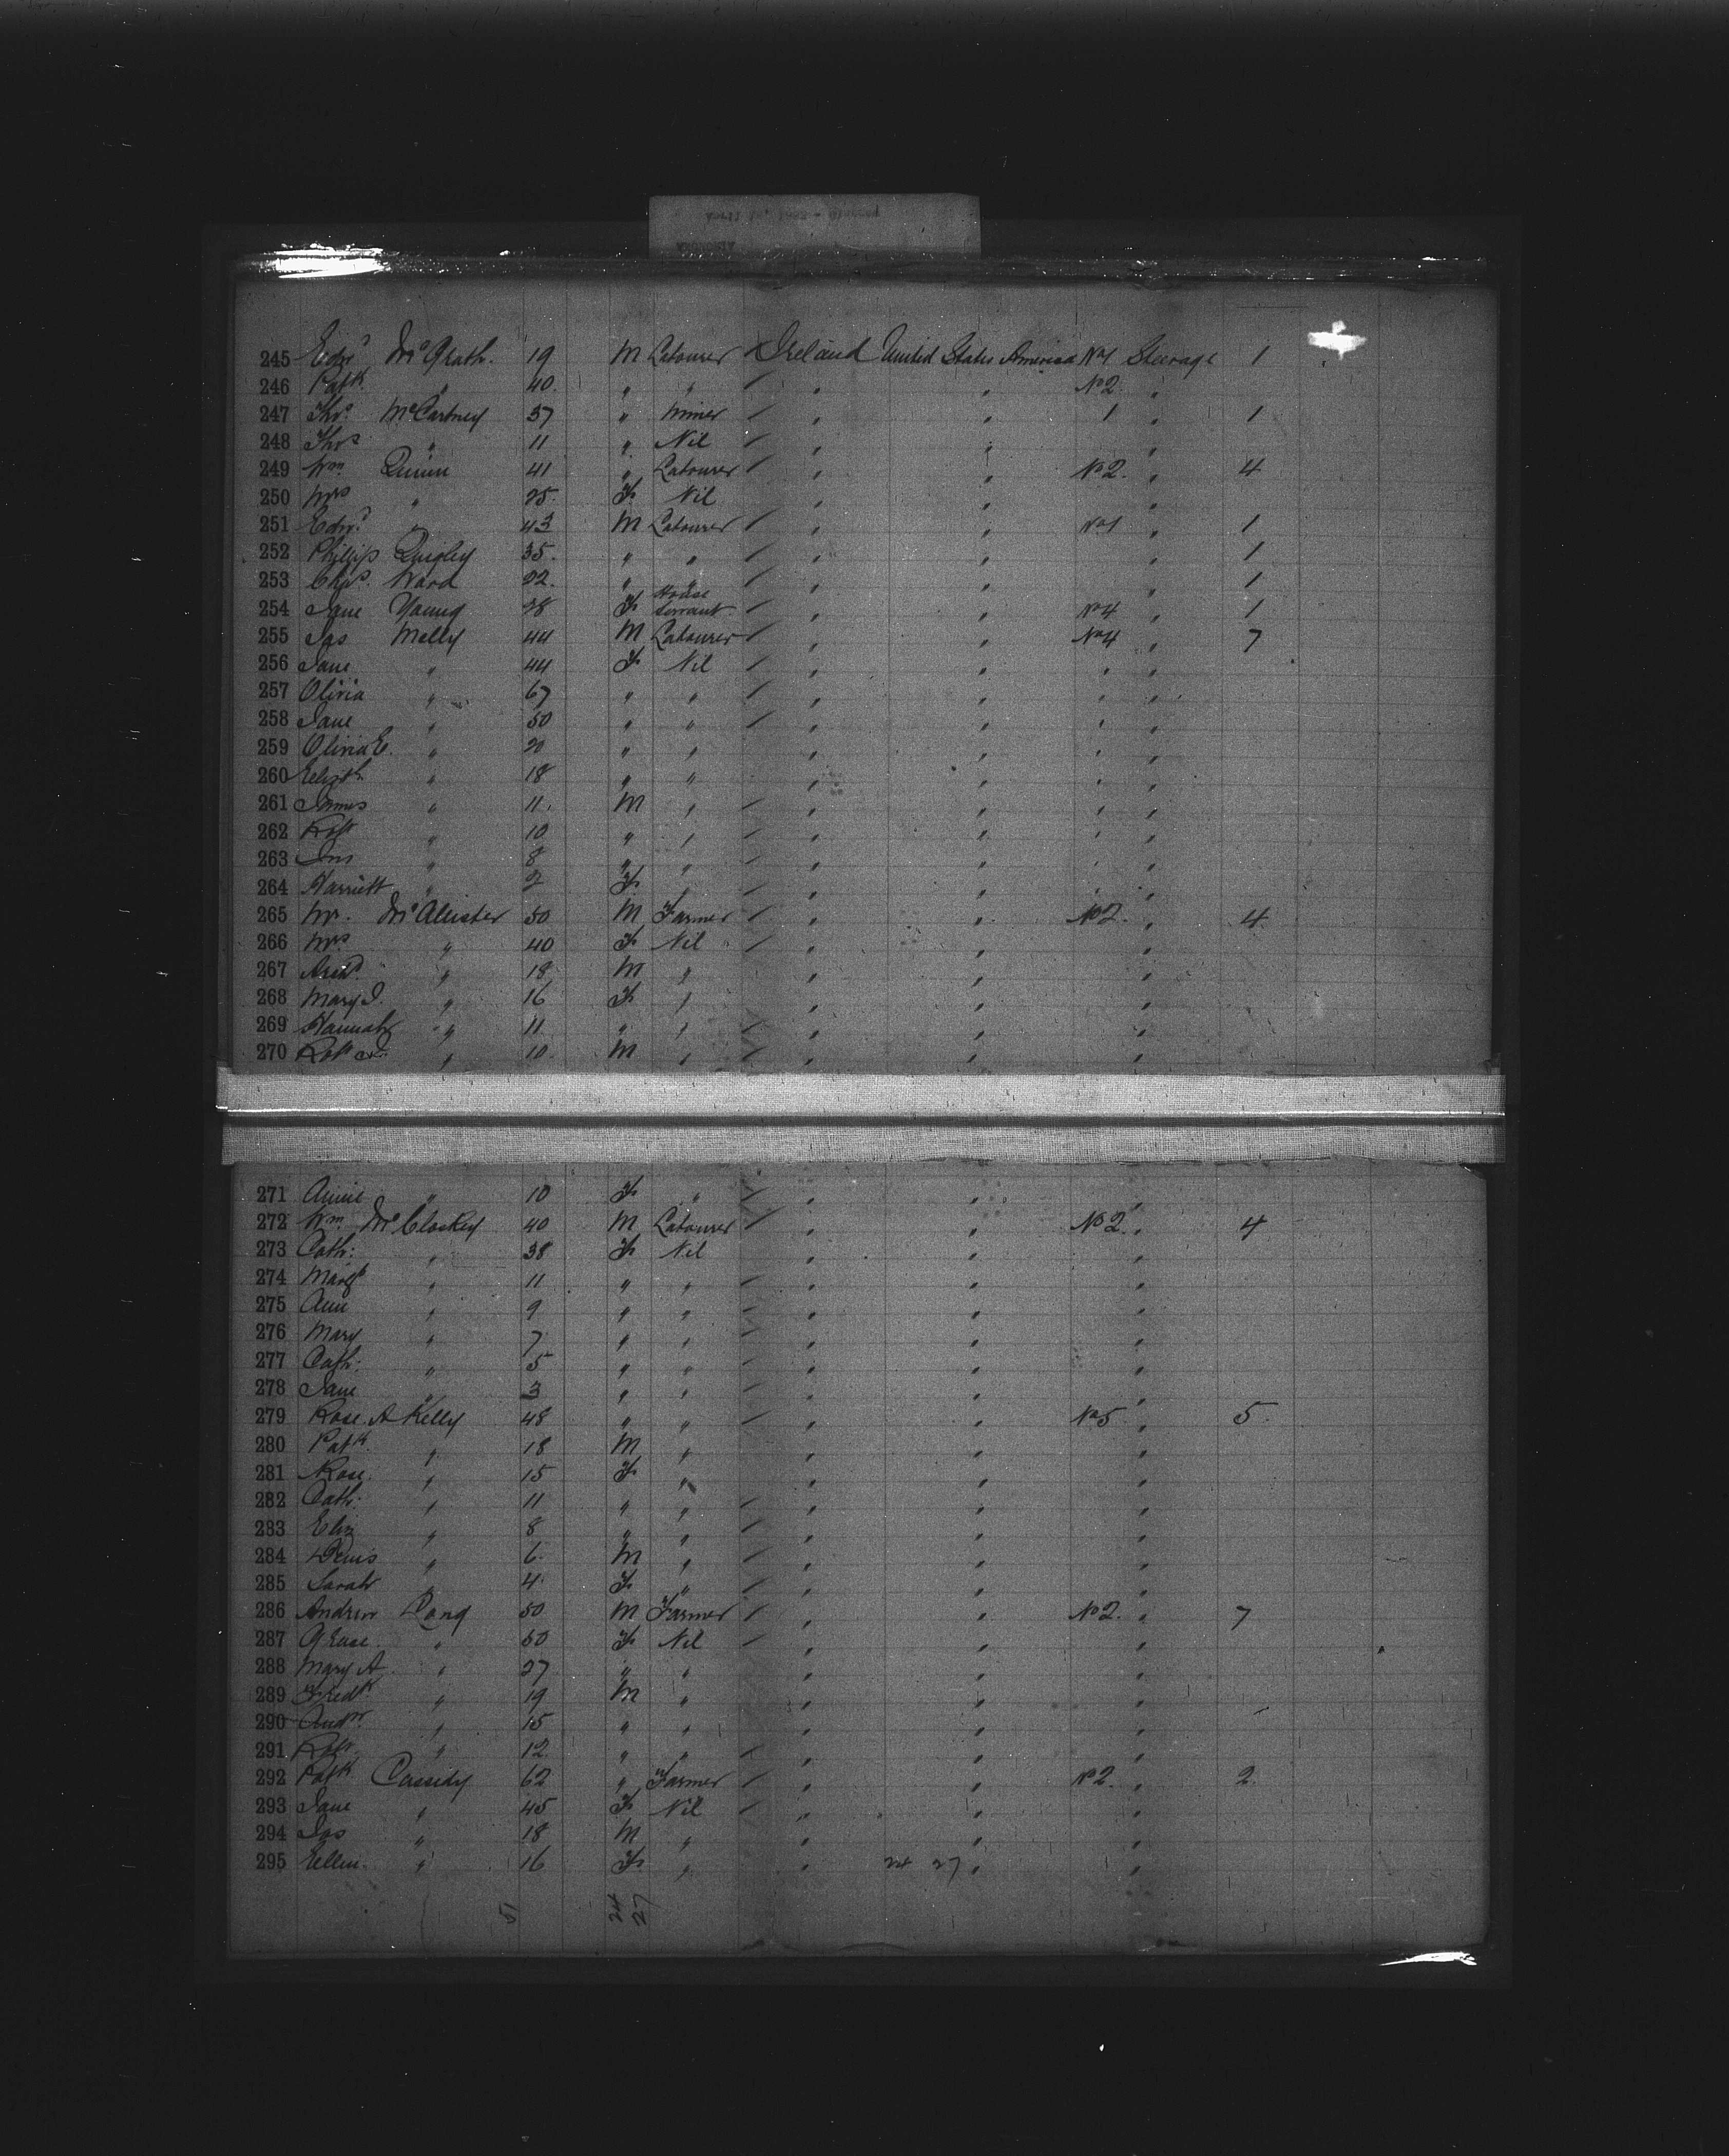 245 Edwd McGrath. 19 M Labourer Ireland United States America No1 Steerage 1
246 Patk " 40. " " " " No2. "
247 Thos McCartney 37 " Miner " " 1 " 1
248 Thos " 11 " Nil " " "
249 Wm Quinn 41 " Labourer " " No2. " 4
250 Mrs " 25. F. Nil " " "
251 Edwd " 43 M Labourer " " No1 " 1
252 Phillip Quigley 35. " " " " " 1
253 Chas. Ward 22. " " " " " 1
254 Jane Young 28 F. House Servant " " No4 " 1
255 Jas Melly 44 M Labourer " " No4 " 7
256 Jane " 44 F. Nil " " " "
257 Olivia " 67 " " " " " "
258 Jane " 50 " " " " " "
259 Olivia E. " 20 " " " " " "
260 Elizth " 18 " " " " " "
261 James " 11. M " " " " "
262 Robt " 10 " " " " " "
263 Jno " 8 " " " " " "
264 Harriett " 2 F. " " " " "
265 Mr. McAlister 50 M Farmer " " No2. " 4
266 Mrs " 40 F. Nil " " "
267 " 18 M " " " "
268 Mary J. " 16 F. " " " "
269 Hannah " 11 " " " " "
270 Robt " 10. M " " " "
271 Annie " 10 F. " " " "
272 Wm. McCloskey 40 M Labourer " " No2. " 4
273 Cath: " 38 F. Nil " " "
274 Margt " 11 " " " " "
275 Ann " 9 " " " " "
276 Mary " 7 " " " " "
277 Cath: " 5 " " " " "
278 Jane " 3 " " " " "
279 Rose A Kelly 48 " " " " No5 " 5.
280 Patk. " 18 M " " " "
281 Rose. " 15 F. " " " "
282 Cath: " 11 " " " " "
283 Eliz " 8 " " " " "
284 Denis " 6. M " " " "
285 Sarah " 4. F. " " " "
286 Andrew Long 50 M Farmer " " No2. " 7
287 " 50 F. Nil " " "
288 Mary A. " 27 " " " " "
289 Fredk " 19 M " " " "
290 Andw. " 15 " " " " "
291 Robt. " 12. " " " " "
292 Patk Cassidy 62 " Farmer " " No2. " 2.
293 Jane " 45 F. Nil " " "
294 Jas " 18 M " " " "
295 Ellen. " 16 F. " " 24 27 " "
51 24 27